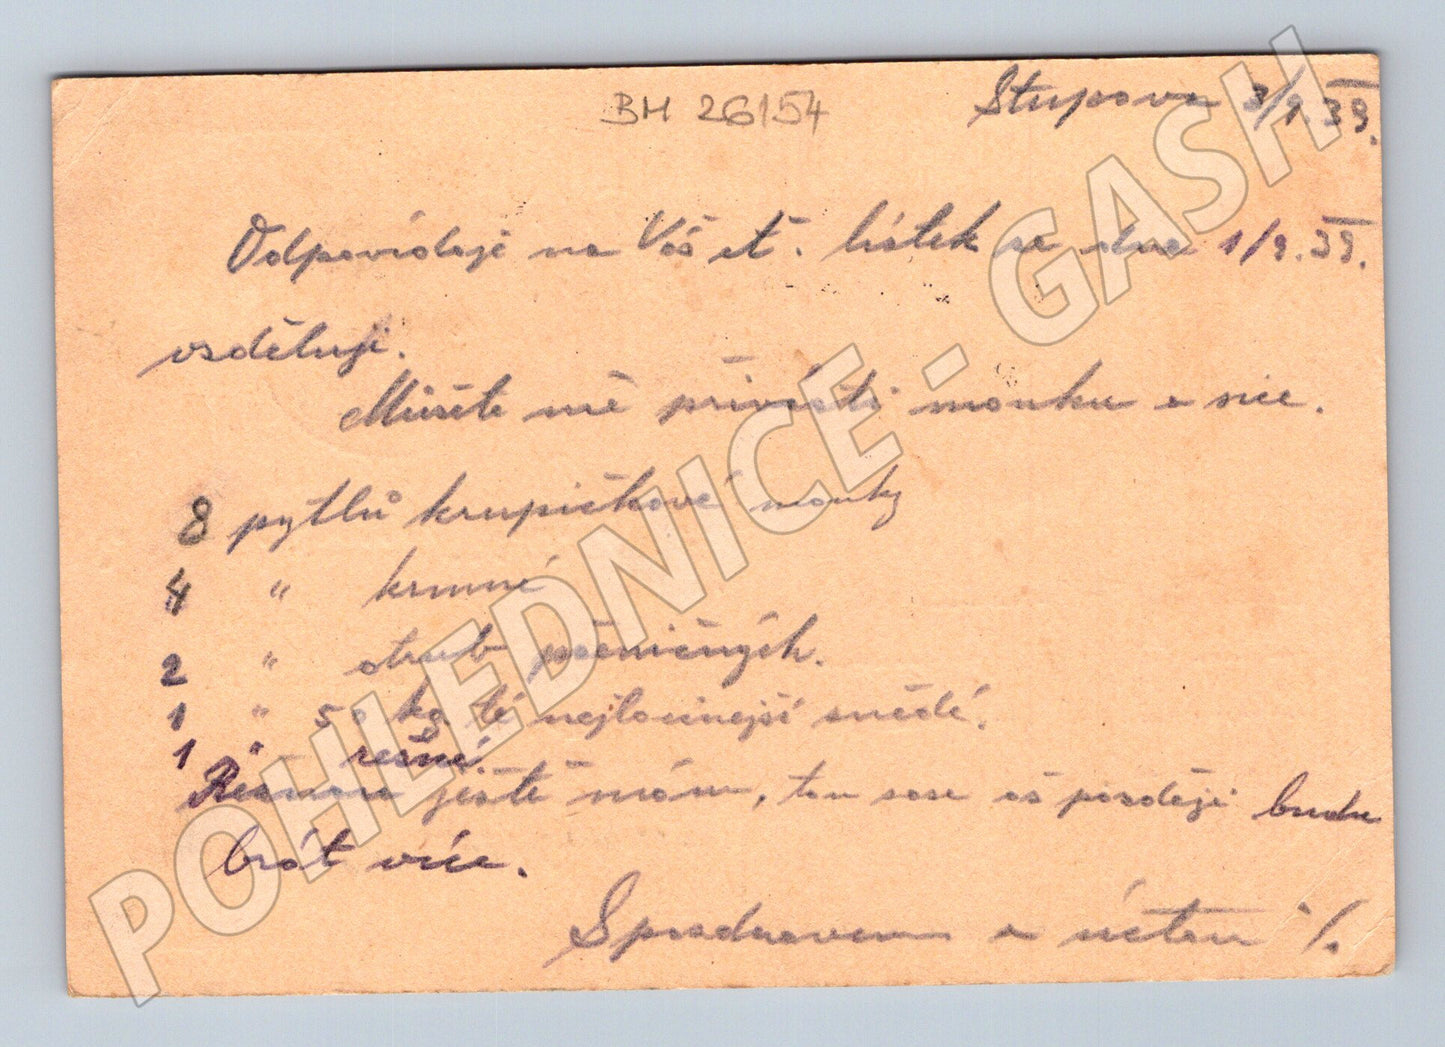 BH 26154
Stupava 3/9. 39.
Odpovídaje na Váš ct. lístek ze dne 1/9. 39.
vzděluji.
Múžete mě přivésti mouku a sice.
8 pytlů krupičkové mouky
4 " krmné
2 " otrub pšeničných.
1 " 50 kg té nejlacinejší snědé.
1 " režné.
ještě mám, tou zase až pozdeji budu
brát více.
S pozdravem a úctou
POHLEDNICE - GASH